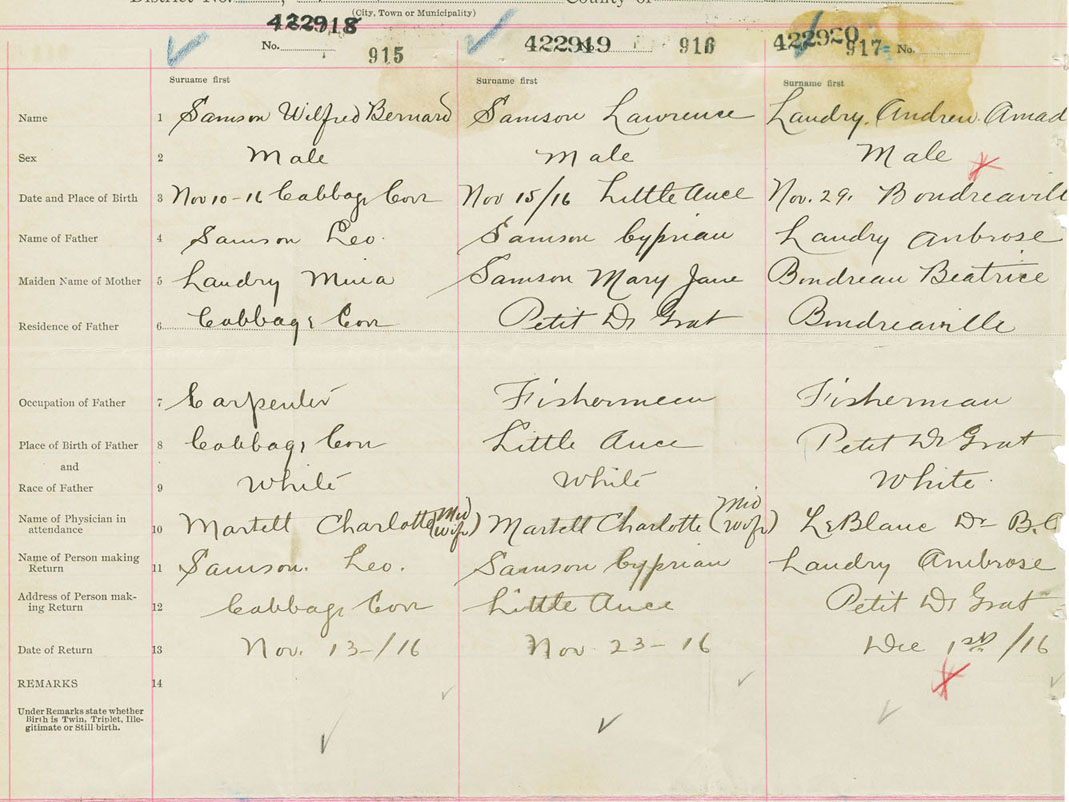 (City, Town or Municipality)
422918 422919 422920
No. 915 916 917 No.
Surname first Surname first Surname first
Name 1 Samson Wilfred Bernard Samson Lawrence Landry, Andrew Amad
Sex 2 Male Male Male
Date and Place of Birth 3 Nov 10-16 Cabbage Cov Nov 15/16 Little Ance Nov. 29. Bondreavill
Name of Father 4 Samson Leo. Samson Cyprian Landry Ambrose
Maiden Name of Mother 5 Landry Mina Samson Mary Jane Bondreau Beatrice
Residence of Father 6 Cabbage Cov Petit De Grat Bondreaville
Occupation of Father 7 Carpenter Fisherman Fisherman
Place of Birth of Father 8 Cabbage Cov Little Ance Petit De Grat
and
Race of Father 9 White White White.
Name of Physician in attendance 10 Martell Charlotte (Mid wife) Martell Charlotte (Mid wife) LeBlanc Dr B.
Name of Person making Return 11 Samson. Leo. Samson Cyprian Landry Ambrose
Address of Person making Return 12 Cabbage Cov Little Ance Petit De Grat
Date of Return 13 Nov. 13-/16 Nov 23-16 Dec 1st /16
REMARKS 14
Under Remarks state whether
Birth is Twin, Triplet, Ille-
gitimate or Still birth.